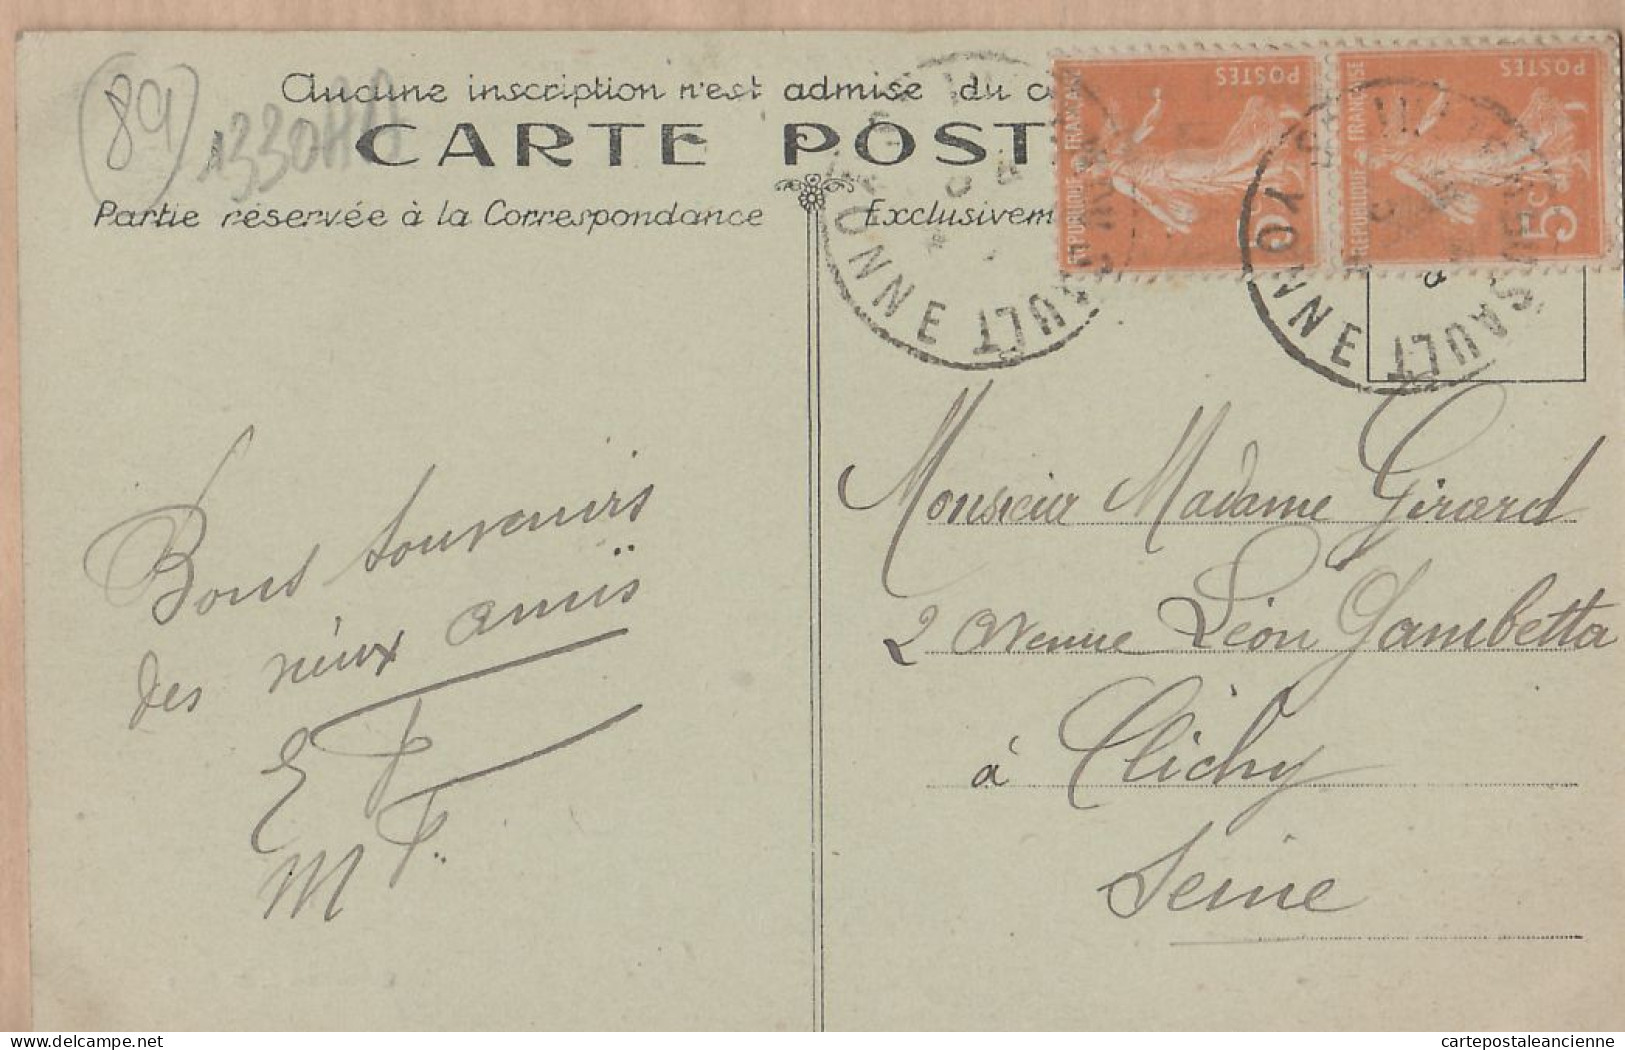 89
1330HA
Aucune inscription n'est admise du c
CARTE POST
Partie réservée à la Correspondance
Exclusivem
POSTES
REPUBLIQUE FRANÇAISE
5
POSTES
REPUBLIQUE FRANÇAISE
5c
YONNE
SAULT
YONNE
SAULT
Bons souvenirs
des vieux amis
E P
M P.
Monsieur Madame Girard
2 Avenue Léon Gambetta
à Clichy
Seine
delcampe.net
cartepostaleancienne